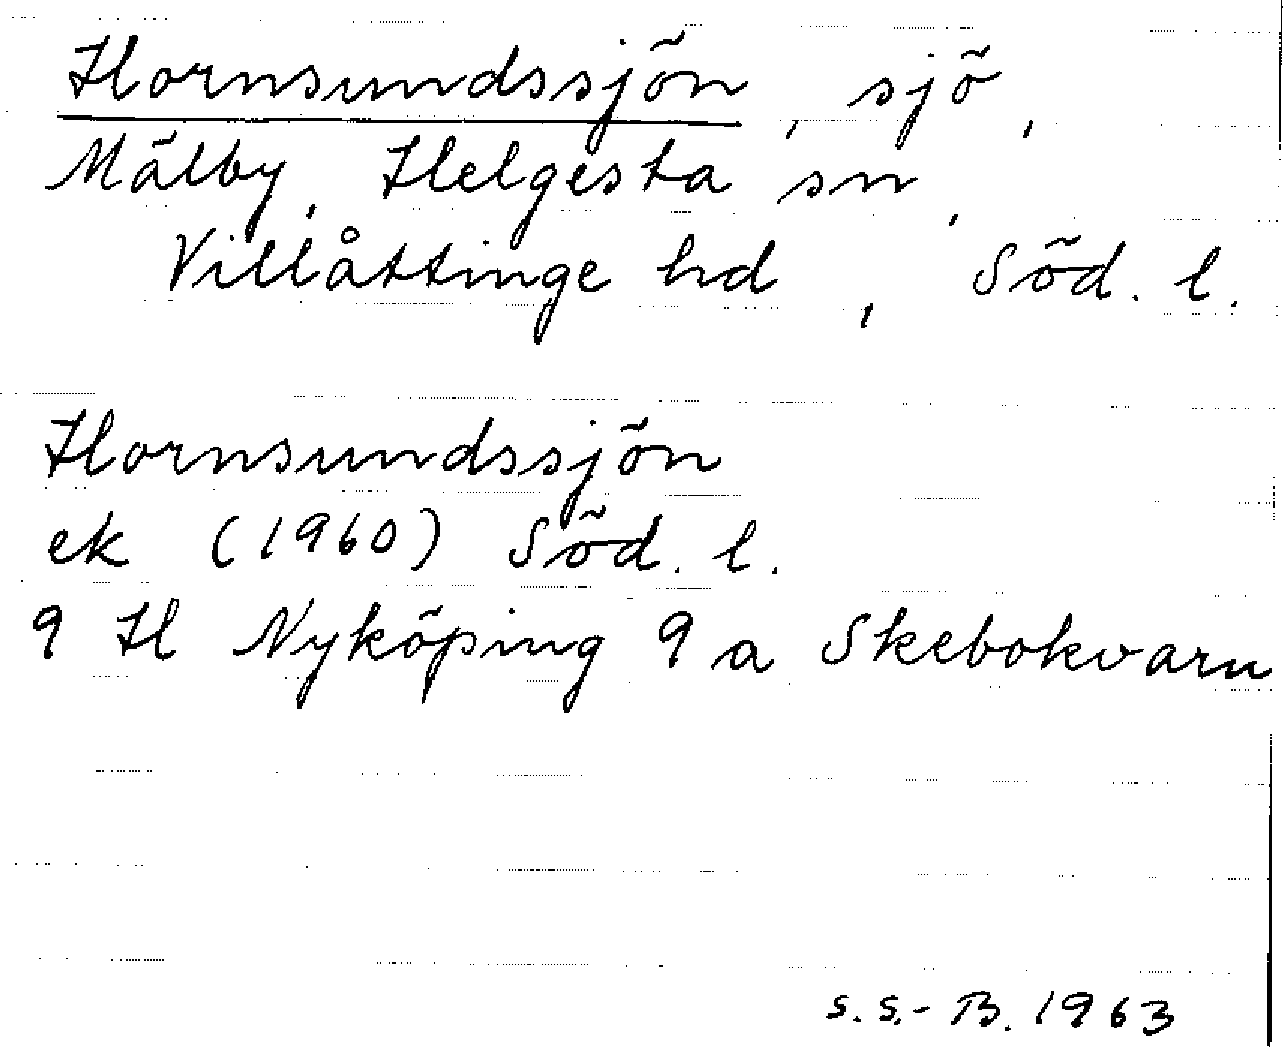 Hornsundssjön, sjö,
Mälby, Helgesta sn,
Villåttinge hd, Söd. l.
Hornsundssjön
ek (1960) Söd. l.
9 H Nyköping 9 a Skebokvarn
S.S.-B. 1963